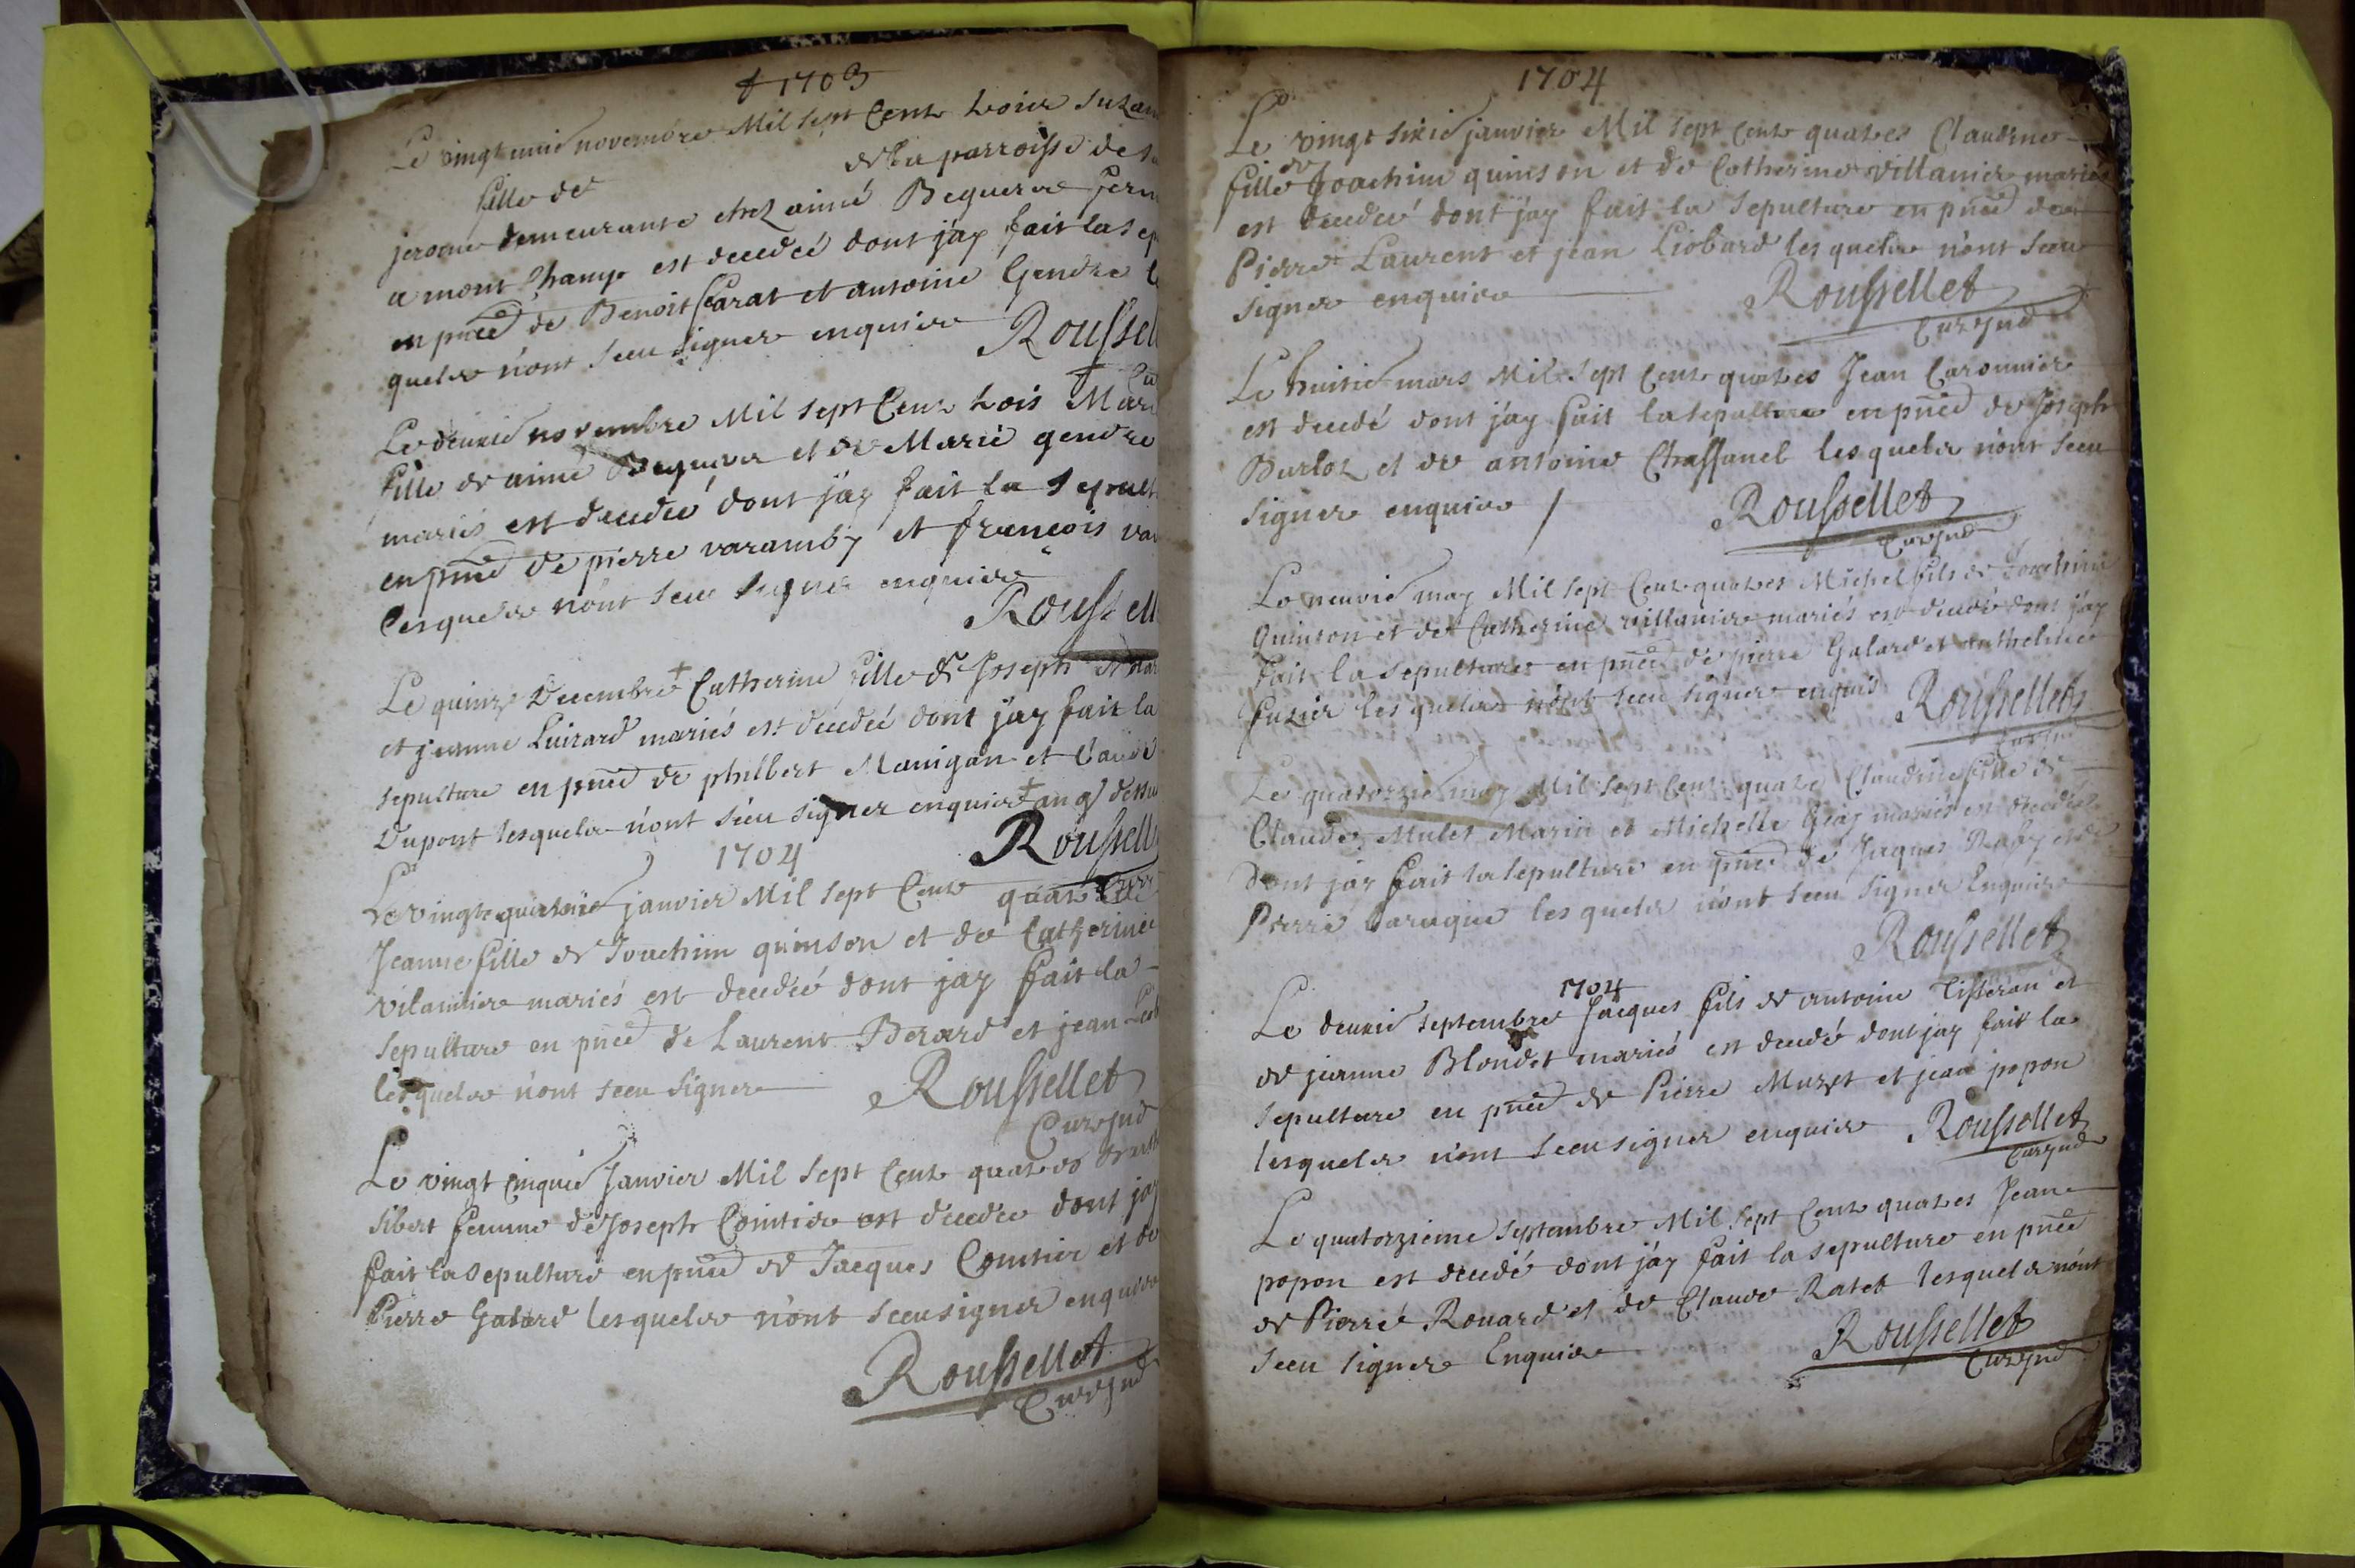 1703
Le vingt unie novembre Mil sept Cent trois Suzan
de la parroisse de
fille de
jerome demeurante chez aimé Beguerre
a mont est decedeé dont j'ay fait la sep
en pnce de Benoit Carat et antoine Gendre
quelz n'ont sceu signer enquire
Roussell
Le deuxie novembre Mil sept Cent trois Mari
fille de aimé et de Marie gendre
mariés est decedeé dont j'ay fait la Sepult
en pnce de pierre varamby et francois var
lesquelz n'ont sceu signer enquire
Roussell
Le quinze Decembre + Catherine fille de Joseph
et jeanne Luizard mariés est decedeé dont j'ay fait la
sepulture en pnce de philbert Manigan et Claude
Dupont lesquelz n'ont sceu signer enquire + an q dessus
1704
Roussell
Le vingt janvier Mil sept Cent quatre
Jeanne fille de Joachim quinson et de Catherine
vilanier mariés est decedeé dont j'ay fait la
sepulture en pnce de Laurent Berard et jean
lesquelz n'ont sceu signer
Roussellet
Cure Jnd
Le vingt cinquie Janvier Mil sept Cent quatres
Sibert femme de Joseph Cointier est decedee dont jay
fait la sepulture en pnce de Jacques Cointier et de
Pierre Galard lesquelz n'ont sceu signer enquire
Roussellet
Cure Jnd
1704
Le vingt sixie janvier Mil sept Cent quatres Claudine
fille de Joachim quinson et de Catherine villanier mariés
est decedeé dont j'ay fait la sepulture en pnce de
Pierre Laurent et jean Liobard lesquelz n'ont sceu
signer enquire
Roussellet
Cure Jnd
Le huitie mars Mil sept Cent quatres Jean Caronnier
est decedé dont j'ay fait la sepulture en pnce de Joseph
Burloz et de antoine Chaffanel lesquelz n'ont sceu
signer enquire /
Roussellet
Cure Jnd
Le neuvie may Mil sept Cent quatres Michel fils de Joachim
Quinson et de Catherine villanier mariés est decedé dont j'ay
fait la sepulture en pnce de pierre Galard et anthelme
fuzier lesquelz n'ont sceu signer enquis
Roussellet
Cure Jnd
Le quatorzie may Mil sept Cent quatre Claudine fille de
Claude Mulet Marin et Michelle mariés est decedeé
dont jay fait la sepulture en pnce de Jaques et de
Pierre lesquelz n'ont sceu signer Enquire
Roussellet
1704
Le deuxie septembre Jacques fils de antoine Tisseran et
de jeanne Blondet mariés est decedé dont jay fait la
sepulture en pnce de Pierre Muzet et jean popon
lesquelz n'ont sceu signer enquire
Roussellet
Cure Jnd
Le quatorzieme septembre Mil sept Cent quatres Jean
popon est decedé dont j'ay fait la sepulture en pnce
de Pierre Rouard et de Claude Ratet lesquelz n'ont
sceu signer Enquire
Roussellet
Cure Jnd